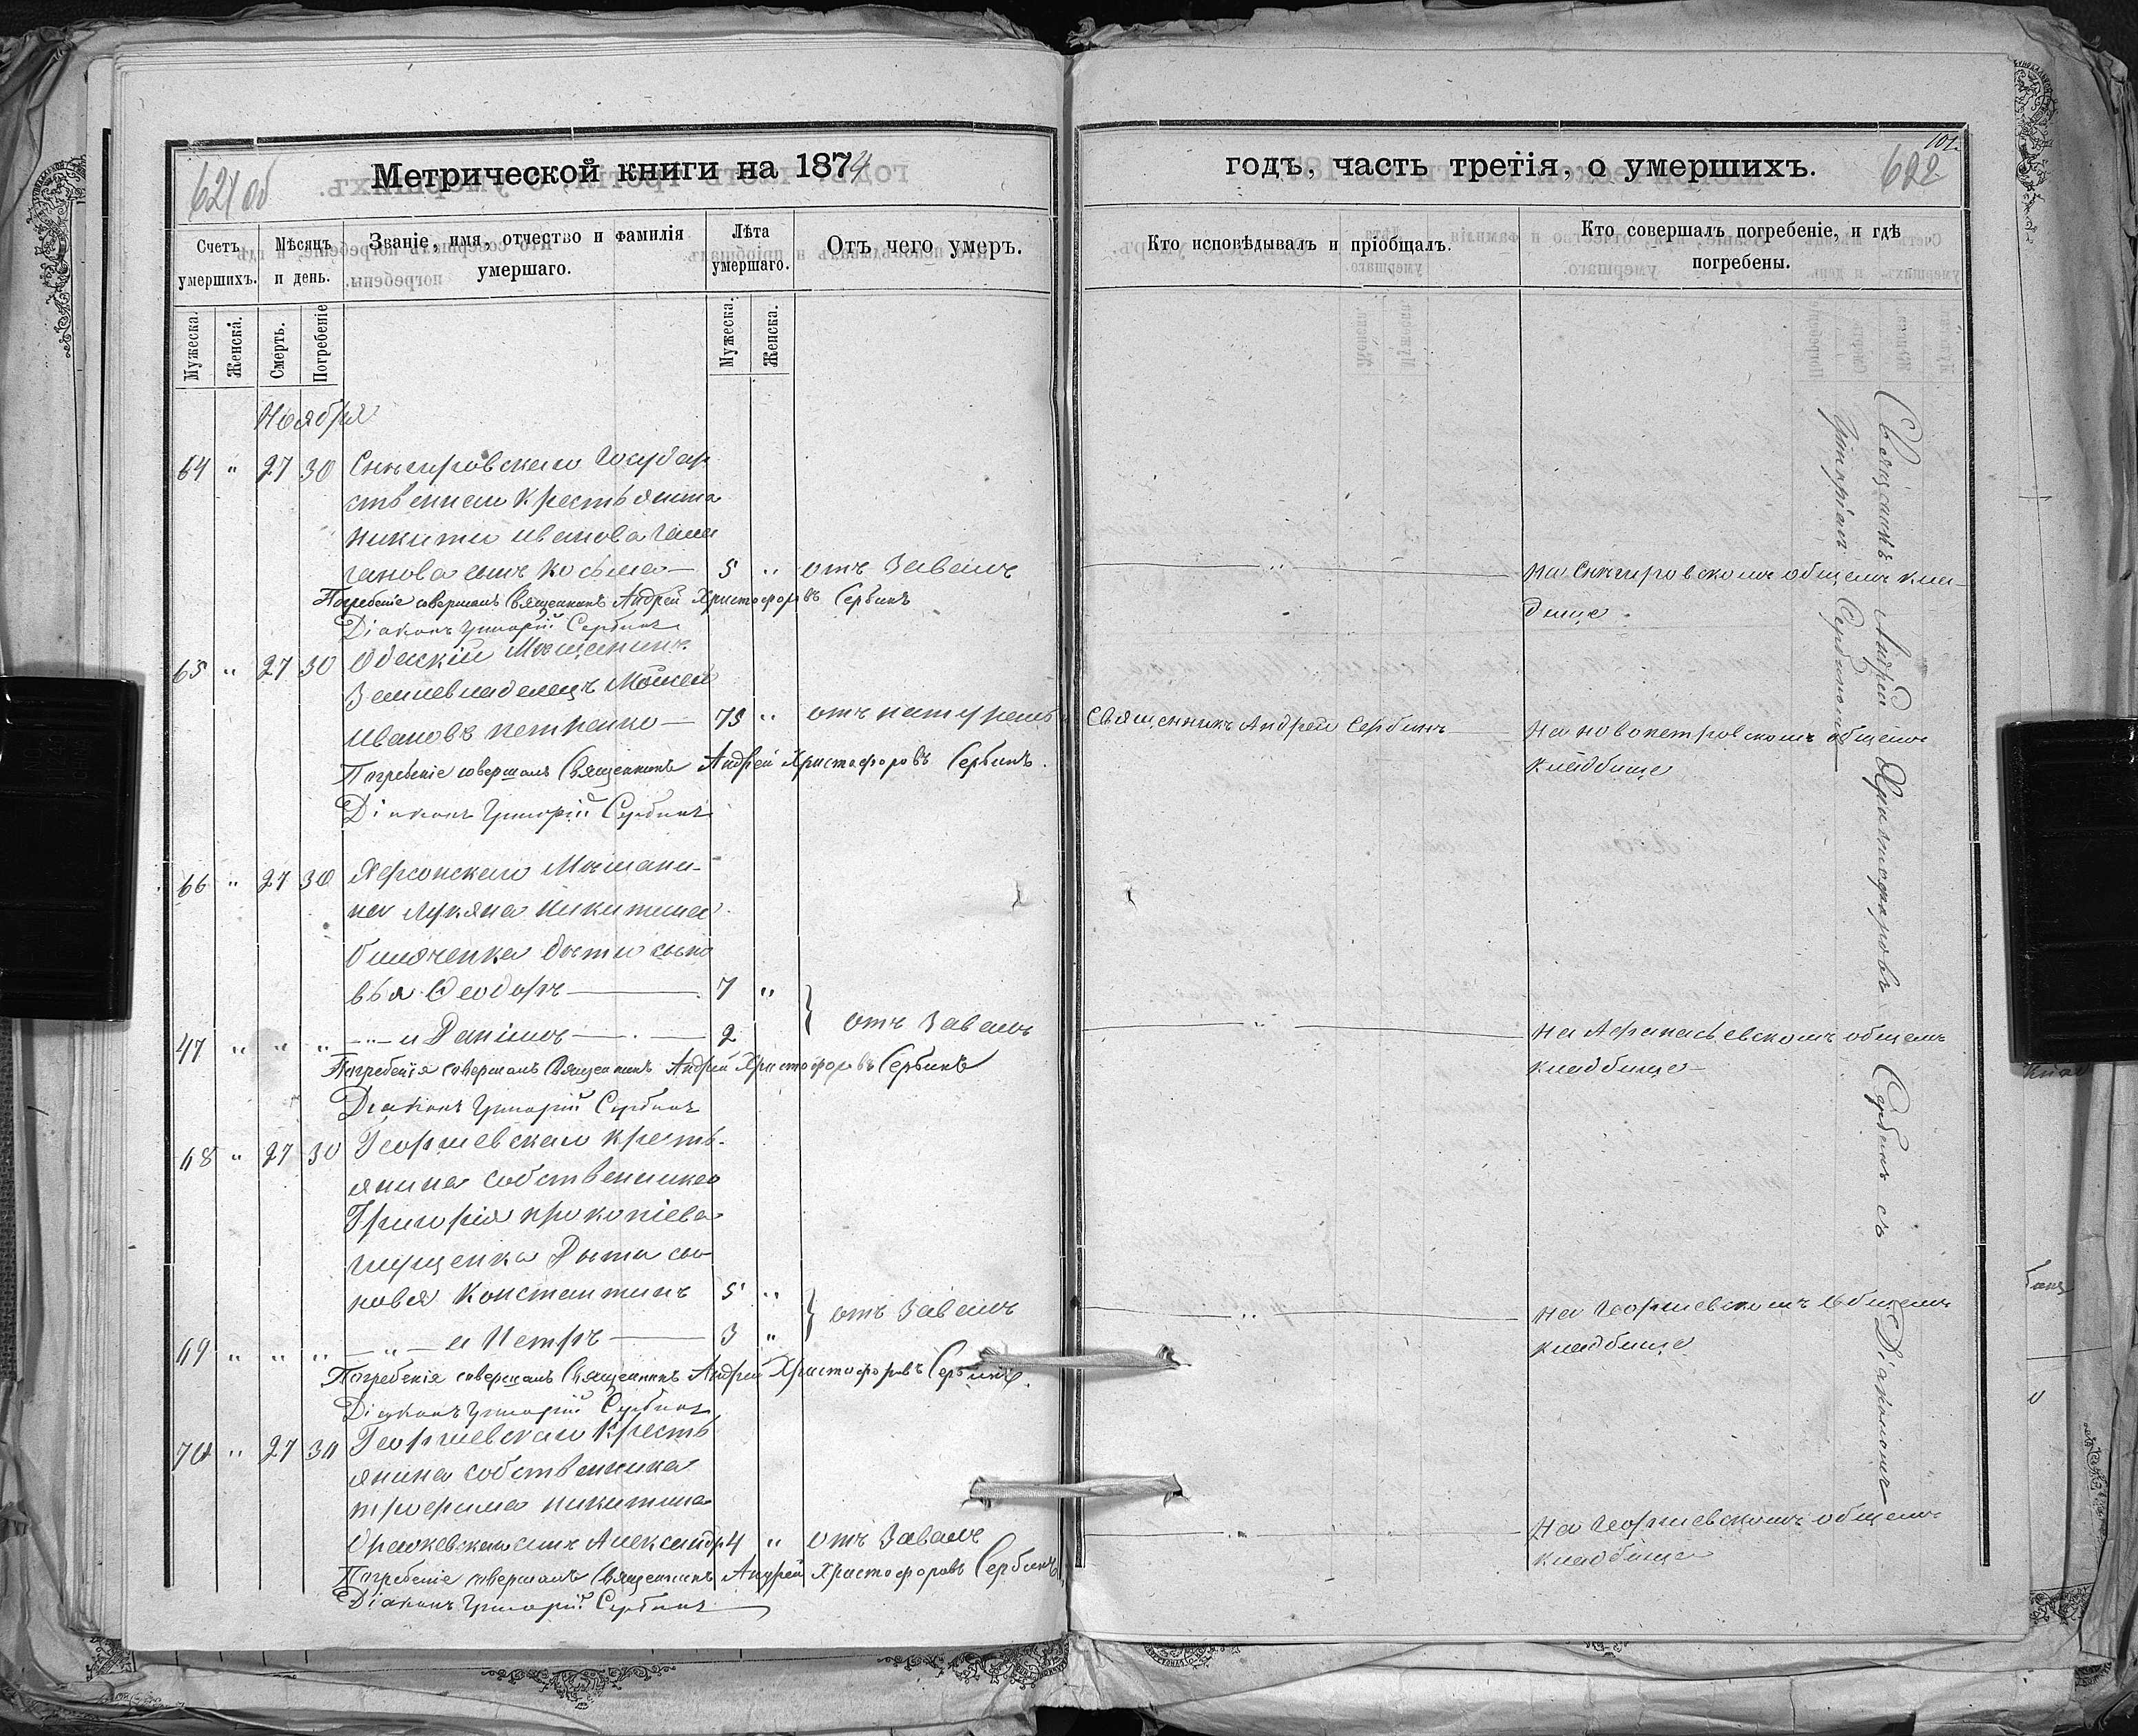 621 об
Метрической книги на 1874
Счетъ умершихъ.
Мѣсяцъ и день.
Званіе, имя, отчество и фамилія умершаго.
Лѣта умершаго.
Отъ чего умеръ.
Мужеска.
Женска.
Смерть.
Погребеніе
Мужеска.
Женска.
Ноября
64 " 27 30 Снигировскаго Государ
ственнаго Крестьянина
Никиты Иванова
сынъ Косьма — 5 " отъ Завалъ
Погребеніе совершалъ Священникъ Андрей Христофоровъ Сербинъ
Діаконъ Григорій Сербинъ
65 " 27 30 Одескій Мѣщанинъ
Землевладелецъ Моисей
Ивановъ Петренко — 75 " отъ натураль
Погребеніе совершалъ Священникъ Андрей Христофоровъ Сербинъ.
Діаконъ Григорій Сербинъ
66 " 27 30 Херсонскаго Мѣщани-
на Лукяна Никитина
дѣти сыно
вья Ѳеодоръ — 7 "
47 " " " — " — и Даніилъ — 2 } отъ Завалъ
Погребенія совершалъ Священникъ Андрей Христофоровъ Сербинъ
Діаконъ Григорій Сербинъ
68 " 27 30 Георгіевскаго Кресть-
янина собственника
Григорія Прокопіева
Дѣти сы
новья Константинъ 5 "
69 " " " — " — и Петръ — 3 " } отъ Завалъ
Погребенія совершалъ Священникъ Андрей Христофоровъ Сербинъ.
Діаконъ Григорій Сербинъ
70 " 27 30 Георгіевскаго Кресть
янина собственника
Трофима Никитина
сынъ Александръ 4 " отъ Завалъ
Погребеніе совершалъ Священникъ Андрей Христофоровъ Сербинъ
Діаконъ Григорій Сербинъ
101.
622
годъ, часть третія, о умершихъ.
Кто исповѣдывалъ и пріобщалъ.
Кто совершалъ погребеніе, и гдѣ погребены.
— " — На Снигировскомъ общемъ кла-
дбище.
Священникъ Андрей Сербинъ — На Новопетровскомъ общемъ
кладбище
— " — На Афанасьевскомъ общемъ
кладбище —
— " — На Георгіевскомъ общемъ
кладбище
— " — На Георгіевскомъ общемъ
кладбище
Священникъ Андрей Христофоровъ Сербинъ съ Діакономъ
Григоріемъ Сербиномъ —